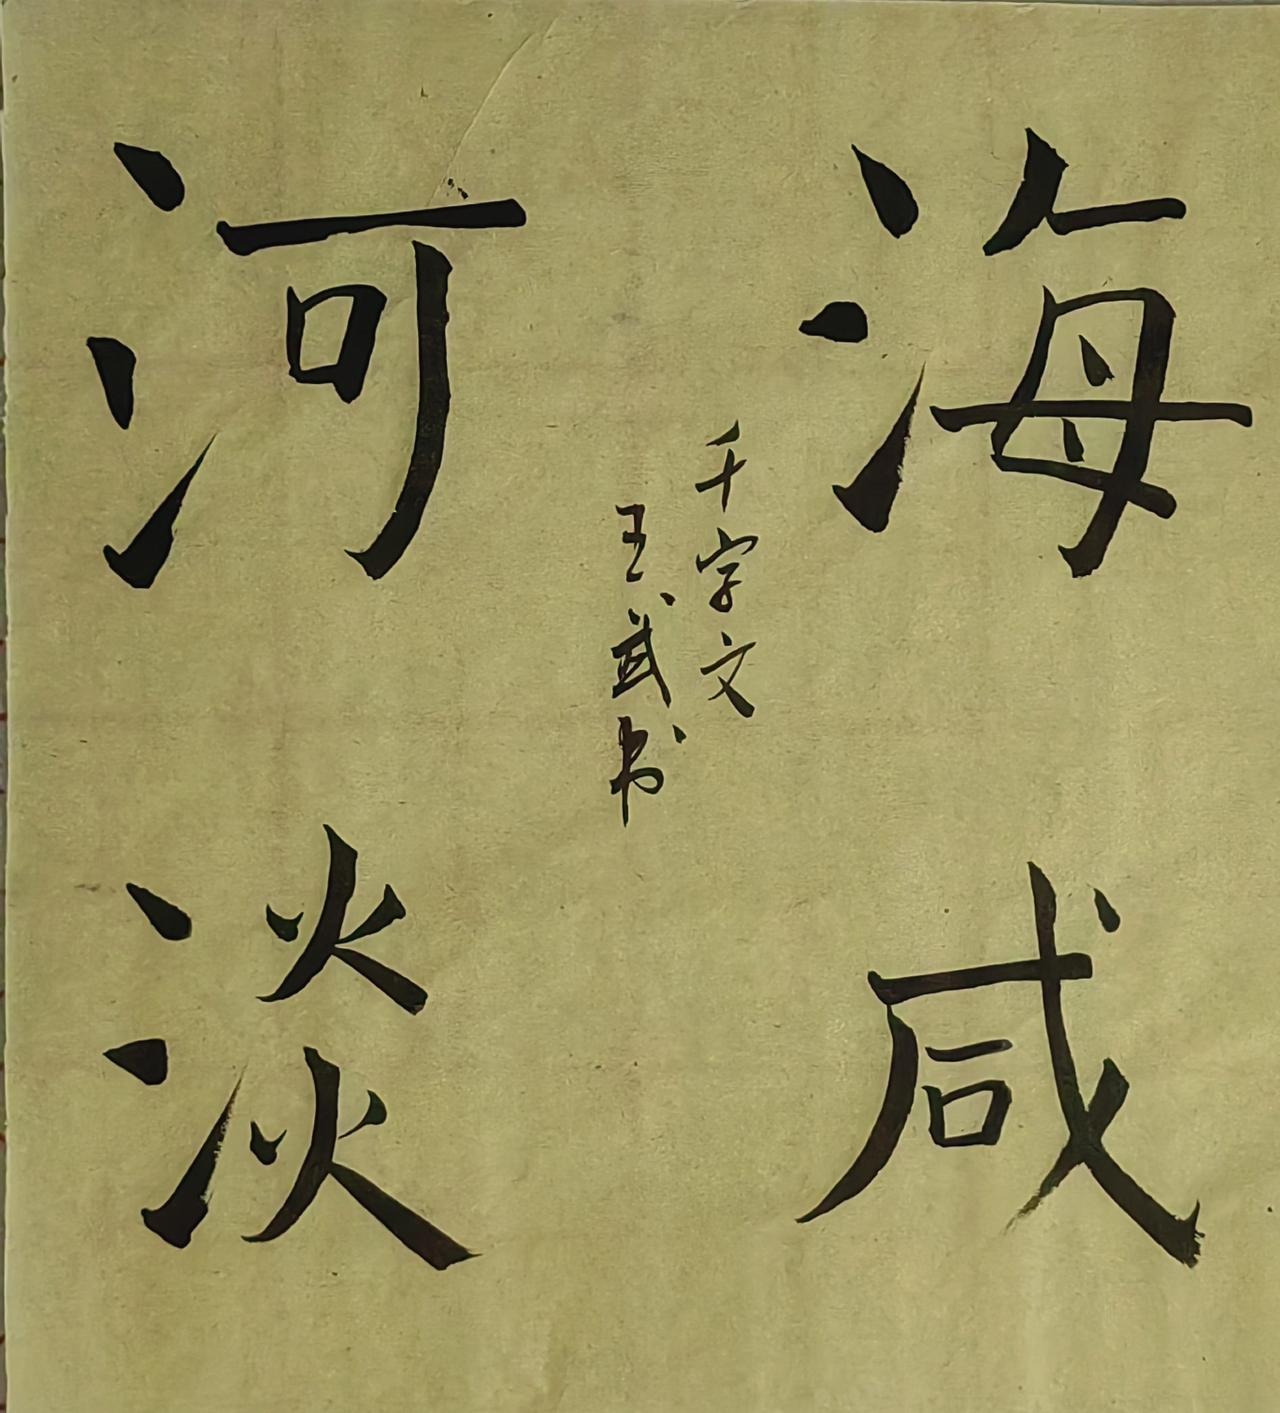 海咸
河淡
千字文
王武书